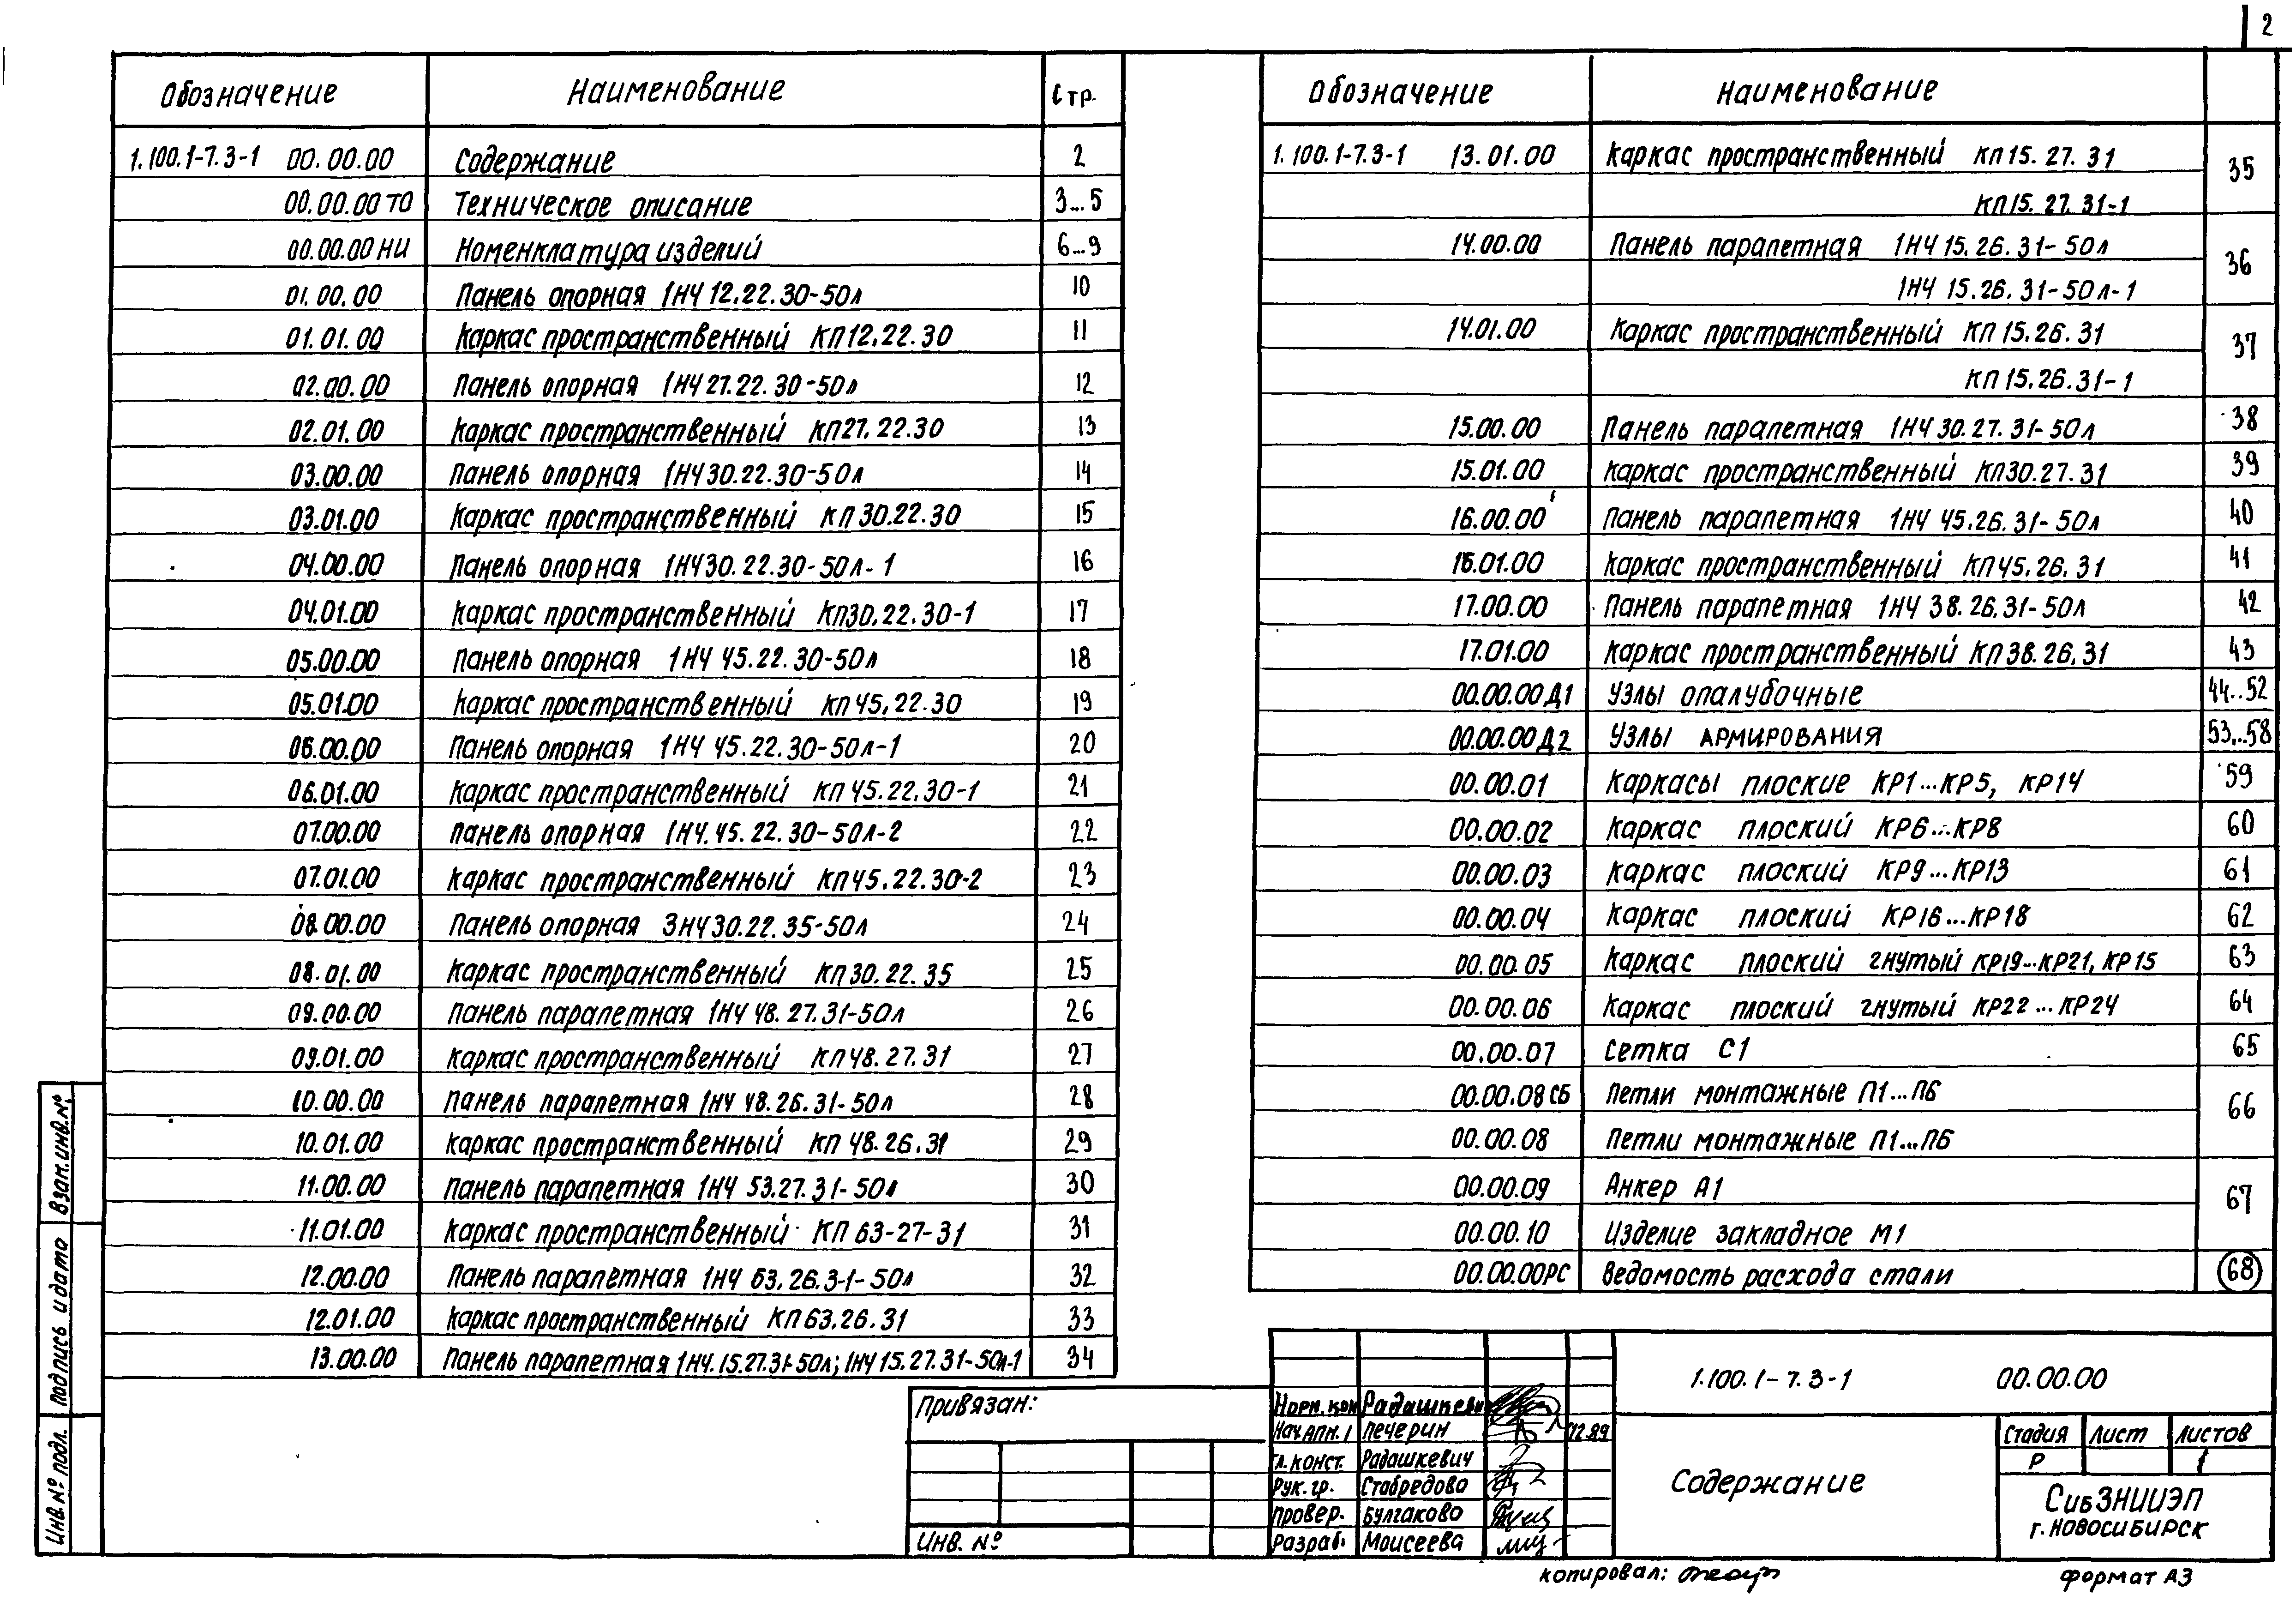 2
Обозначение Наименование Стр.
1.100.1-7.3-1 00.00.00 Содержание 2
00.00.00 ТО Техническое описание 3...5
00.00.00 НИ Номенклатура изделий 6...9
01.00.00 Панель опорная 1НЧ 12.22.30-50л 10
01.01.00 Каркас пространственный КП12.22.30 11
02.00.00 Панель опорная 1НЧ 27.22.30-50л 12
02.01.00 Каркас пространственный КП27.22.30 13
03.00.00 Панель опорная 1НЧ 30.22.30-50л 14
03.01.00 Каркас пространственный КП 30.22.30 15
04.00.00 Панель опорная 1НЧ 30.22.30-50л-1 16
04.01.00 Каркас пространственный КП30.22.30-1 17
05.00.00 Панель опорная 1НЧ 45.22.30-50л 18
05.01.00 Каркас пространственный КП 45.22.30 19
06.00.00 Панель опорная 1НЧ 45.22.30-50л-1 20
06.01.00 Каркас пространственный КП 45.22.30-1 21
07.00.00 Панель опорная 1НЧ.45.22.30-50л-2 22
07.01.00 Каркас пространственный КП45.22.30-2 23
08.00.00 Панель опорная 3НЧ30.22.35-50л 24
08.01.00 Каркас пространственный КП30.22.35 25
09.00.00 Панель парапетная 1НЧ 48.27.31-50л 26
09.01.00 Каркас пространственный КП48.27.31 27
10.00.00 Панель парапетная 1НЧ 48.26.31-50л 28
10.01.00 Каркас пространственный КП 48.26.31 29
11.00.00 Панель парапетная 1НЧ 53.27.31-50л 30
11.01.00 Каркас пространственный КП 63-27-31 31
12.00.00 Панель парапетная 1НЧ 63.26.3-1-50л 32
12.01.00 Каркас пространственный КП63.26.31 33
13.00.00 Панель парапетная 1НЧ.15.27.31-50л; 1НЧ 15.27.31-50л-1 34
Обозначение Наименование
1.100.1-7.3-1 13.01.00 Каркас пространственный КП15.27.31 35
КП15.27.31-1
14.00.00 Панель парапетная 1НЧ 15.26.31-50л 36
1НЧ 15.26.31-50л-1
14.01.00 Каркас пространственный КП 15.26.31 37
КП 15.26.31-1
15.00.00 Панель парапетная 1НЧ 30.27.31-50л 38
15.01.00 Каркас пространственный КП30.27.31 39
16.00.00 Панель парапетная 1НЧ 45.26.31-50л 40
16.01.00 Каркас пространственный КП45.26.31 41
17.00.00 Панель парапетная 1НЧ 38.26.31-50л 42
17.01.00 Каркас пространственный КП38.26.31 43
00.00.00 Д1 Узлы опалубочные 44..52
00.00.00 Д2 Узлы армирования 53...58
00.00.01 Каркасы плоские КР1...КР5, КР14 59
00.00.02 Каркас плоский КР6...КР8 60
00.00.03 Каркас плоский КР9...КР13 61
00.00.04 Каркас плоский КР16...КР18 62
00.00.05 Каркас плоский гнутый КР19...КР21, КР15 63
00.00.06 Каркас плоский гнутый КР22...КР24 64
00.00.07 Сетка С1 65
00.00.08 СБ Петли монтажные П1...П6 66
00.00.08 Петли монтажные П1...П6
00.00.09 Анкер А1 67
00.00.10 Изделие закладное М1
00.00.00РС Ведомость расхода стали 68
Взам.инв.№
Подпись и дата
Инв.№ подл.
Привязан:
Инв. №
Норм.кон Радашкевич
Нач.АПМ.1 Печерин 12.89
Гл.конст. Радашкевич
Рук.гр. Стабредова
Провер. Булгакова
Разраб. Моисеева
1.100.1-7.3-1 00.00.00
Содержание
Стадия Лист Листов
Р 1
СибЗНИИЭП
г. Новосибирск
копировал:
формат А3